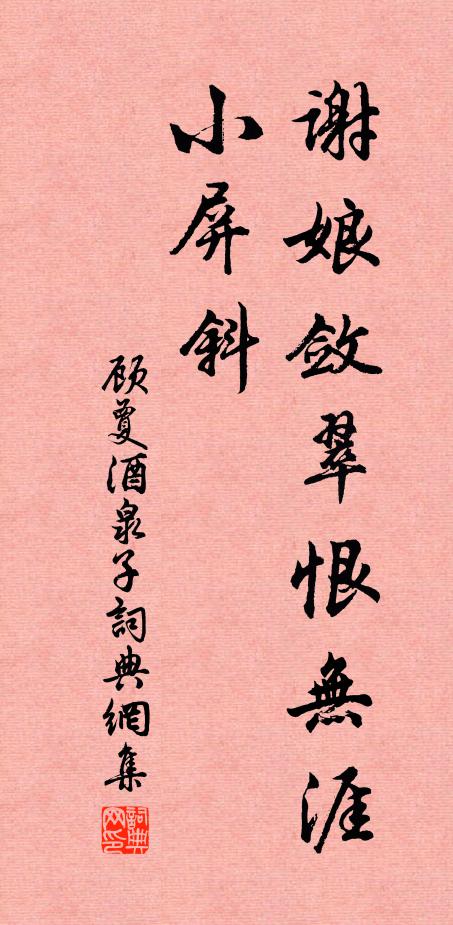 谢娘敛翠恨無涯
小屏斜
顾敻酒泉子詞典網集
詞典网印